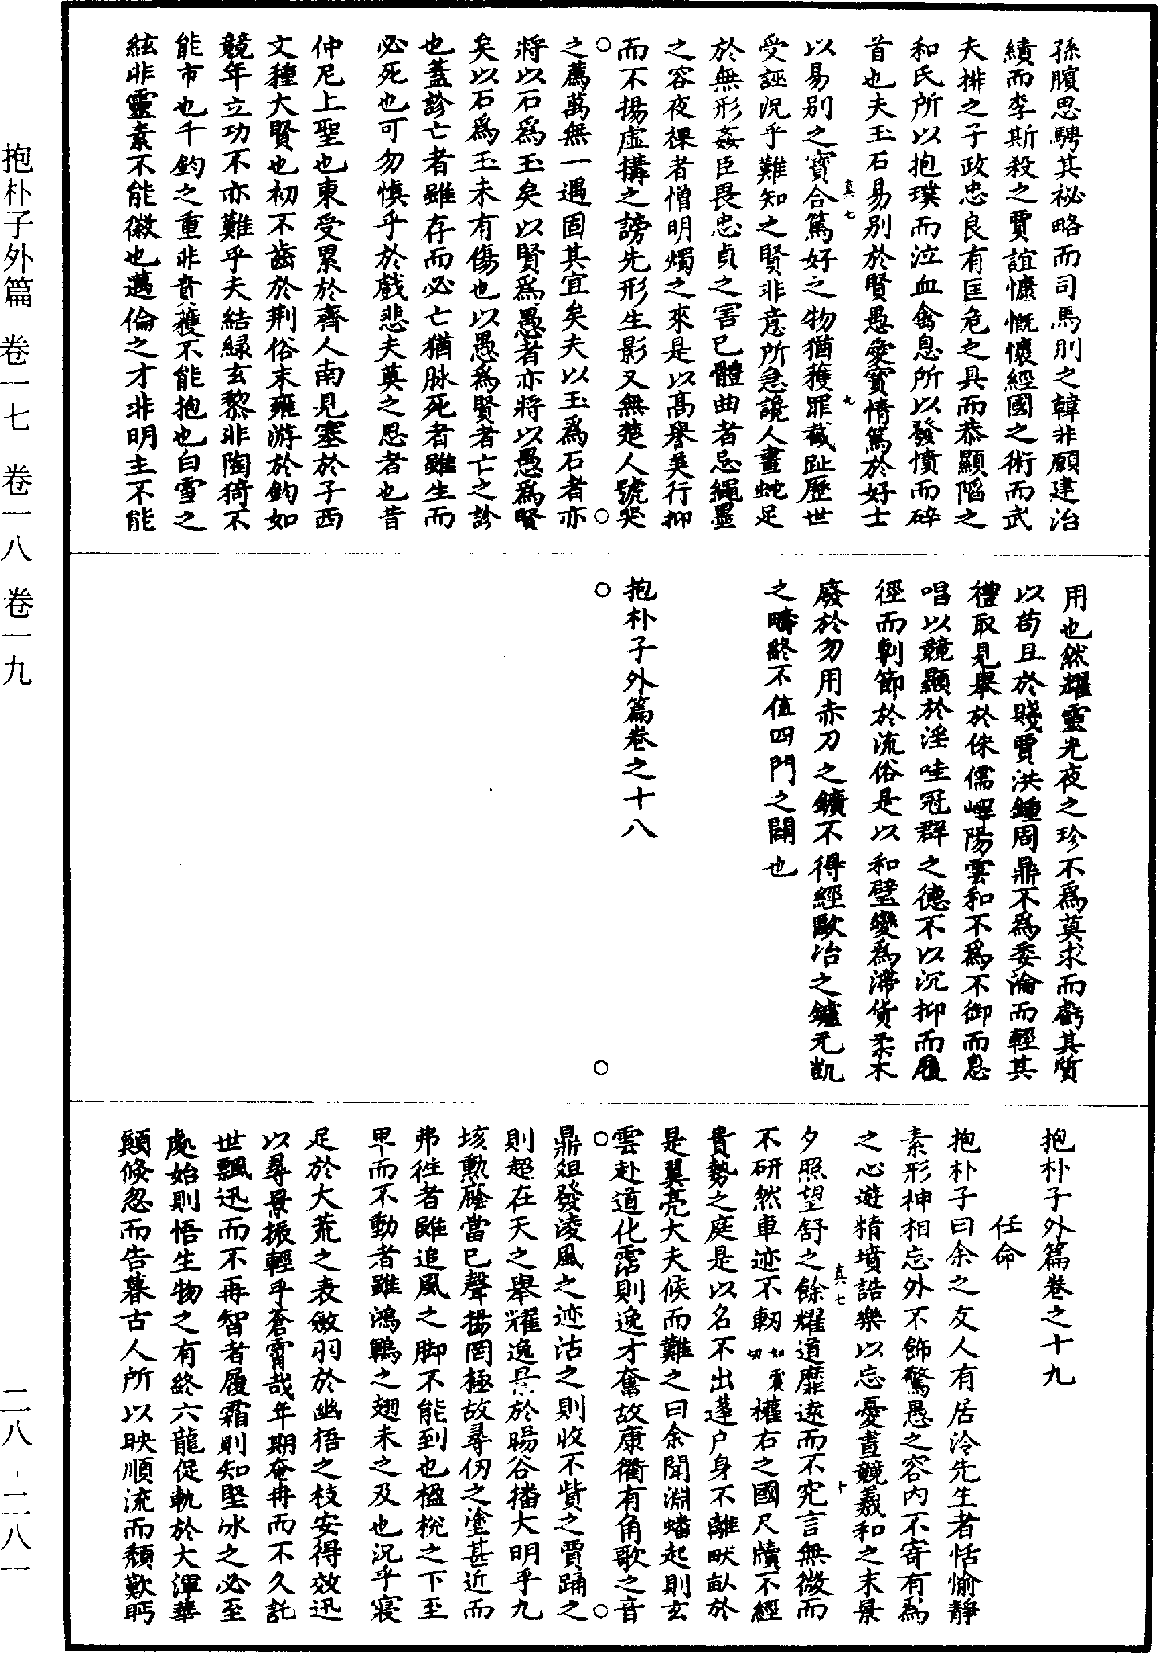 孫臏思騁其祕略而司馬刖之韓非願建治
績而李斯殺之賈誼慷慨懷經國之術而武
夫排之子政忠良有匡危之具而恭顯陷之
和氏所以抱璞而泣血禽息所以發憤而碎
首也夫玉石易別於賢愚愛寶情篤於好士
以易別之寶合篤好之物猶獲罪截趾歷世
受誣況乎難知之賢非意所急讒人畫蛇足
於無形姦臣畏忠貞之害已體曲者忌繩墨
之容夜裸者憎明燭之來是以高譽美行抑
而不揚虛構之謗先形生影又無楚人號哭
之薦萬無一遇固其宜矣夫以玉為石者亦
將以石為玉矣以賢為愚者亦將以愚為賢
矣以石為玉未有傷也以愚為賢者亡之診
也蓋診亡者雖存而必亡猶脉死者雖生而
必死也可勿慎乎於戲悲夫莫之思者也昔
仲尼上聖也東受累於齊人南見塞於子西
文種大賢也初不齒於荆俗末雍游於鈞如
競年立功不亦難乎夫結緑玄黎非陶猗不
能市也千鈞之重非賁獲不能抱也白雪之
絃非靈素不能徽也邁倫之才非明主不能
用也然耀靈光夜之珍不為莫求而虧其質
以苟且於賤賈洪鍾周鼎不為委淪而輕其
禮取見舉於侏儒嶧陽雲和不為不御而息
唱以競顯於淫哇冠群之德不以沉抑而履
徑而剸節於流俗是以和璧變為滯貨柔木
廢於勿用赤刀之鑛不得經歐冶之鑪元凱
之疇終不值四門之闢也
抱朴子外篇卷之十八
抱朴子外篇卷之十九
任命
抱朴子曰余之友人有居泠先生者恬愉靜
素形神相忘外不飾驚愚之容内不寄有為
之心遊精墳誥樂以忘憂晝競羲和之末景
夕照望舒之餘耀道靡遠而不究言無微而
不研然車迹不軔權右之國尺牘不經
貴勢之庭是以名不出蓬户身不離畎畝於
是翼亮大夫候而難之曰余聞淵蟠起則玄
雲赴道化霑則逸才奮故康衢有角歌之音
鼎俎發淩風之迹沽之則收不貲之賈踊之
則超在天之舉耀逸景於暘谷播大明乎九
垓勳廕當已聲揚罔極故尋仞之塗甚近而
弗往者雖追風之脚不能到也楹棁之下至
卑而不動者雖鴻鵾之翅未之及也况乎寢
足於大荒之表斂羽於幽梧之枝安得效迅
以尋景振輕乎蒼霄哉年期奄冉而不久託
世飄迅而不再智者履霜則知堅冰之必至
處始則悟生物之有終六龍促軌於大渾華
顛倏忽而告暮古人所以映順流而頽歎眄
抱朴子外篇 卷一七 卷一八 卷一九
二八·二八一
真七
九
真七
十